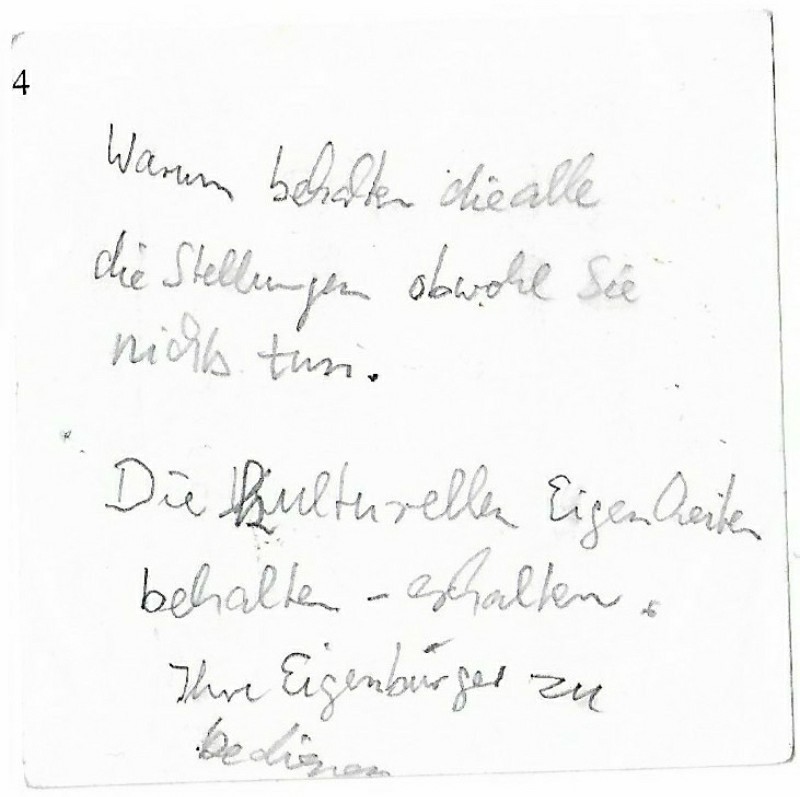 4
Warum behalten die alle
die Stellungen obwohl Sie
nichts tun.
Die kulturellen Eigenheiten
behalten - erhalten.
Ihre Eigenbürger zu
bedienen